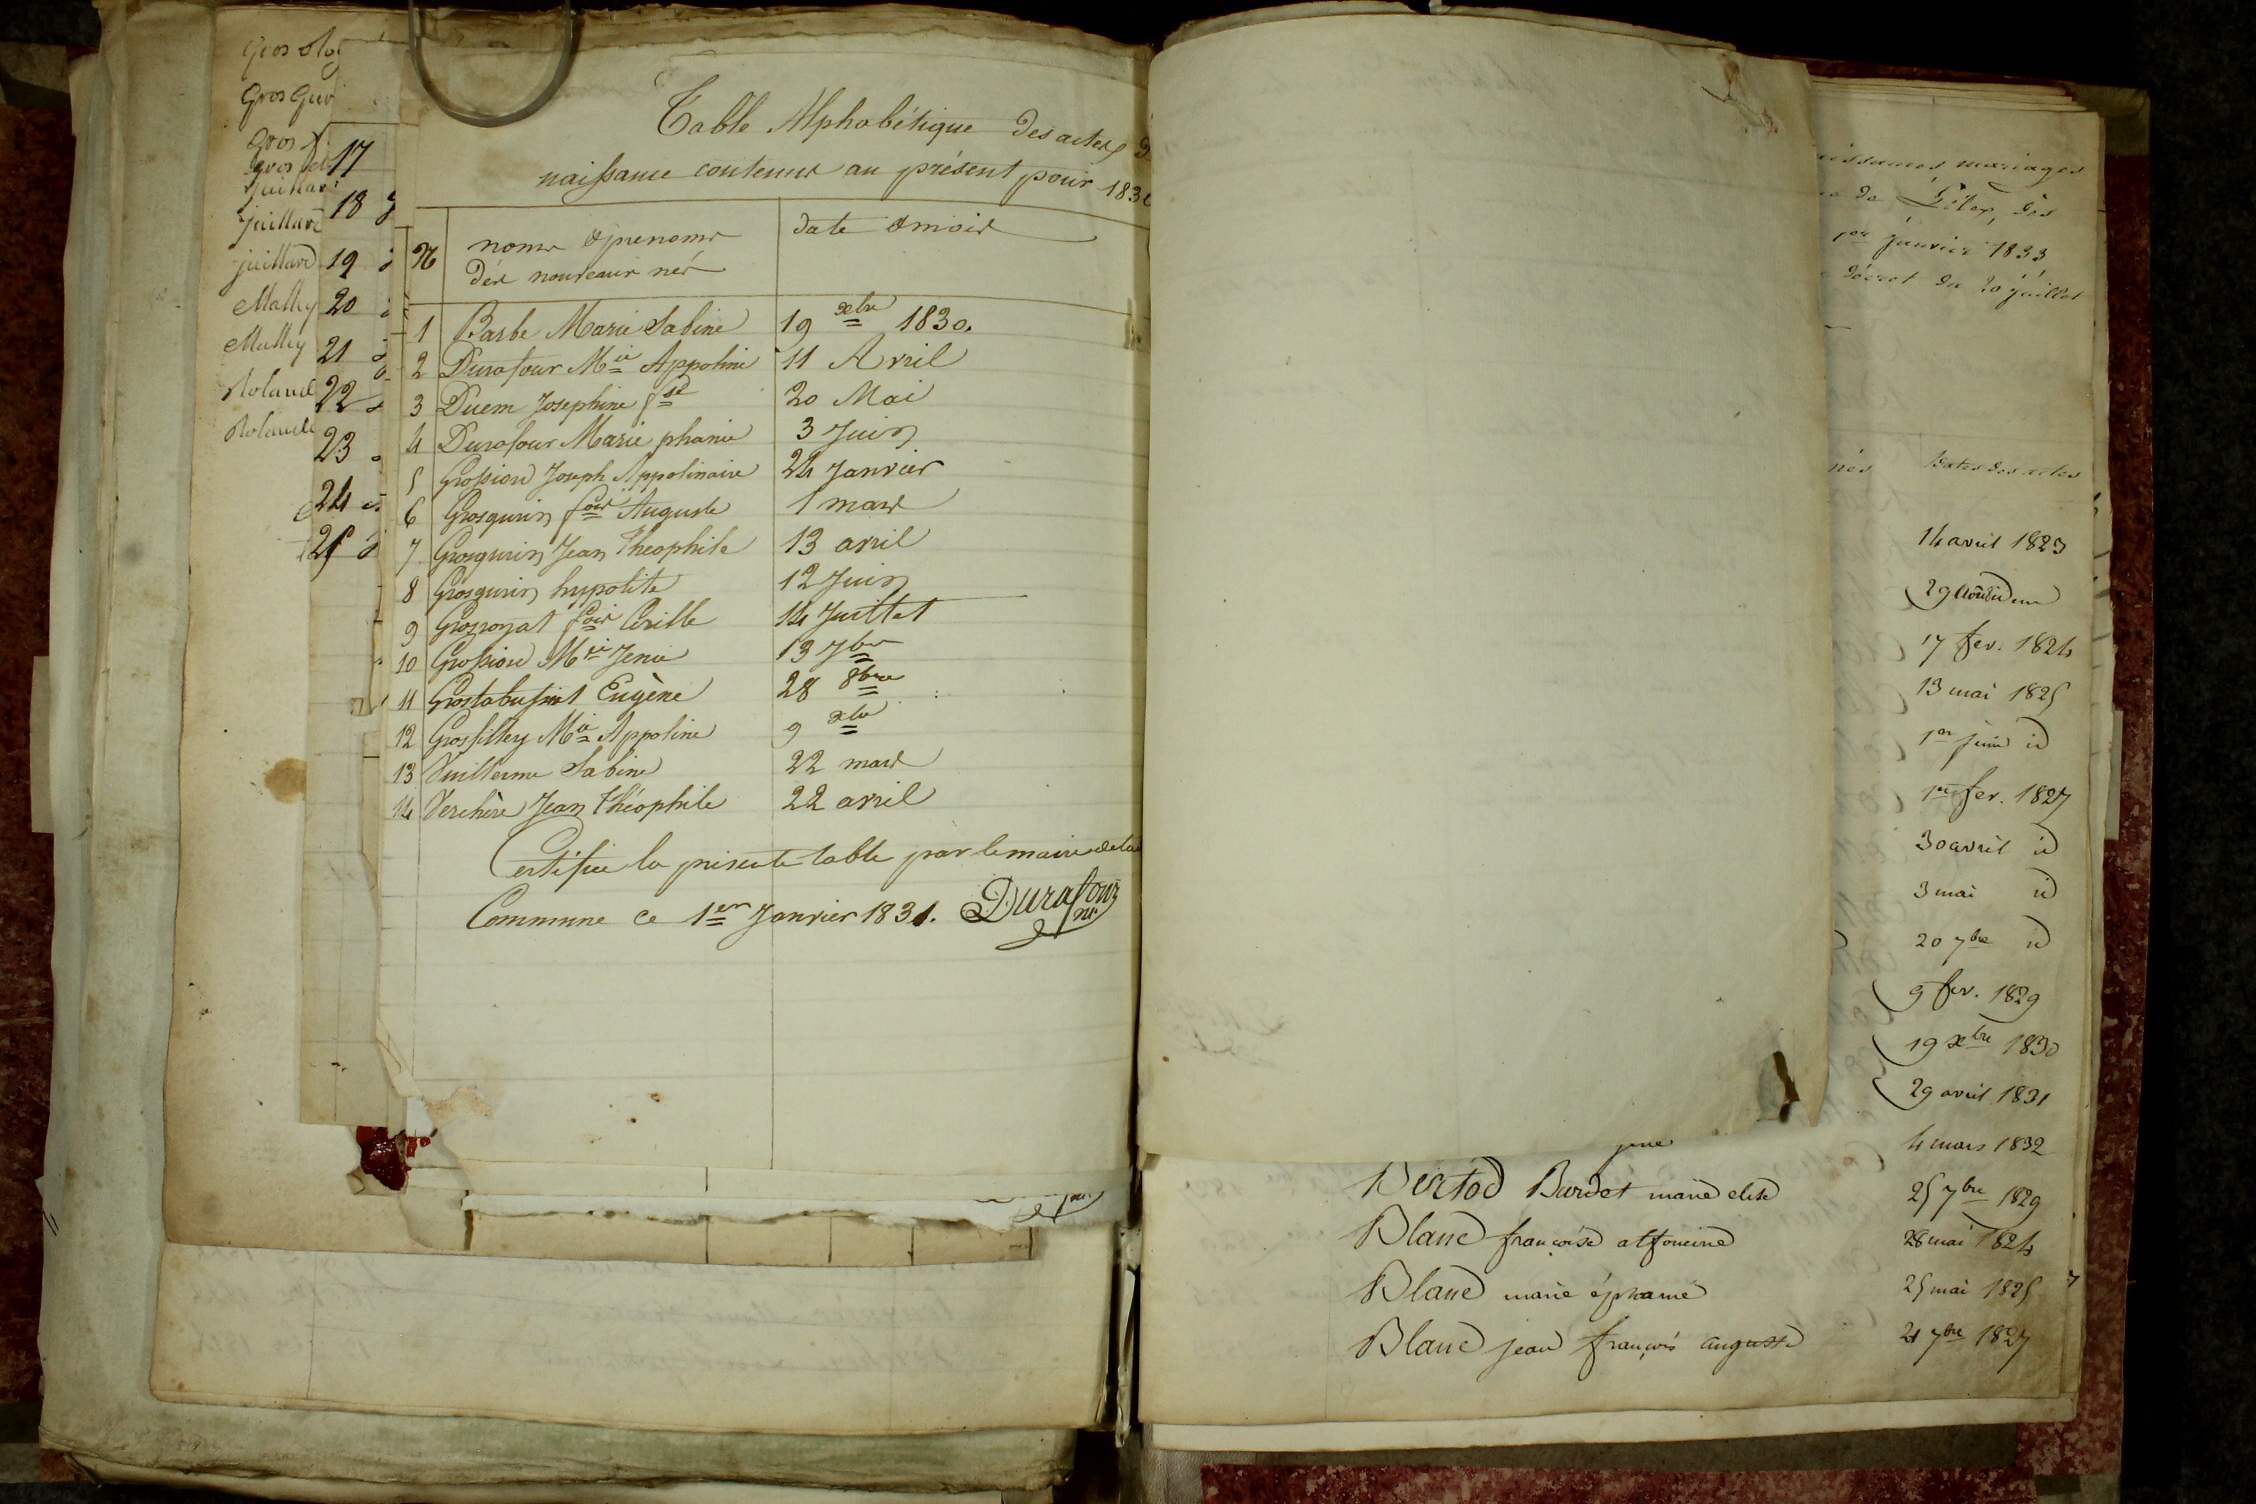 Gros
Gros Guri
Gros
Gros
juillard
juillard
juillard
Mathy
Mathy
Roland
Roland
17
18
19
20
21
22
23
24
25
Table Alphabétique des actes
naissance contenus au présent pour 183
N noms & prenoms date & mois
des nouveaux nés
1 Barbe Marie Sabine 19 xbre 1830.
2 Durafour Mie Appoline 11 Avril
3 Duem Josephine fse 20 Mai
4 Durafour Marie phanie 3 Juin
5 Grossiord Joseph Appolinaire 24 Janvier
6 Grosgurin fois Auguste 1 mars
7 Grosgurin Jean Theophile 13 avril
8 Grosgurin hypolite 12 Juin
9 Grosroyat fois Cirille 14 Juillet
10 Grossiord Mie Jenie 13 7bre
11 Grostabussiat Eugène 28 8bre
12 Grosfilley Mie Appoline 9 xbre
13 Vuillerme Sabine 22 mars
14 Verchère Jean Théophile 22 avril
Certifiée la présente table par le maire de la
Commune ce 1er Janvier 1831. Durafour
mre
naissances, mariages
de Giléx, dès
1er janvier 1833
décret du 20 juillet
nés Dates des actes
14 avril 1823
29 dudit
17 fev. 1824
13 mai 1825
1er juin id
1er fev. 1827
30 avril id
3 mai id
20 7bre id
9 fev. 1829
19 xbre 1830
29 avril 1831
4 mars 1832
Bertod Burdet marie elise 25 7bre 1829
Blanc françoise alfonsine 28 mai 1824
Blanc marie éphanie 25 mai 1825
Blanc jean françois auguste 21 7bre 1827